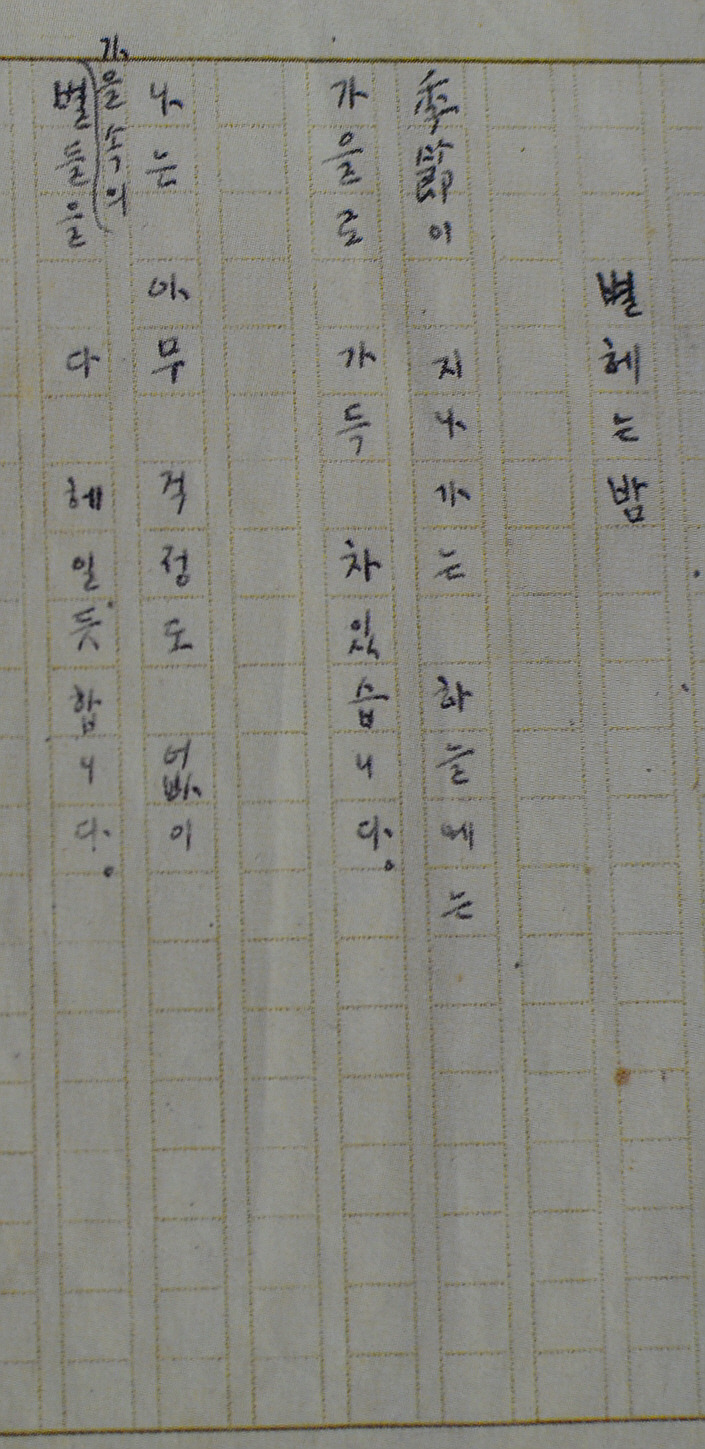 별헤는밤
季節이 지나가는 하늘에는
가을로 가득 차있습니다。
나는 아무 걱정도 없이
가을속의
별들을 다 헤일듯합니다。